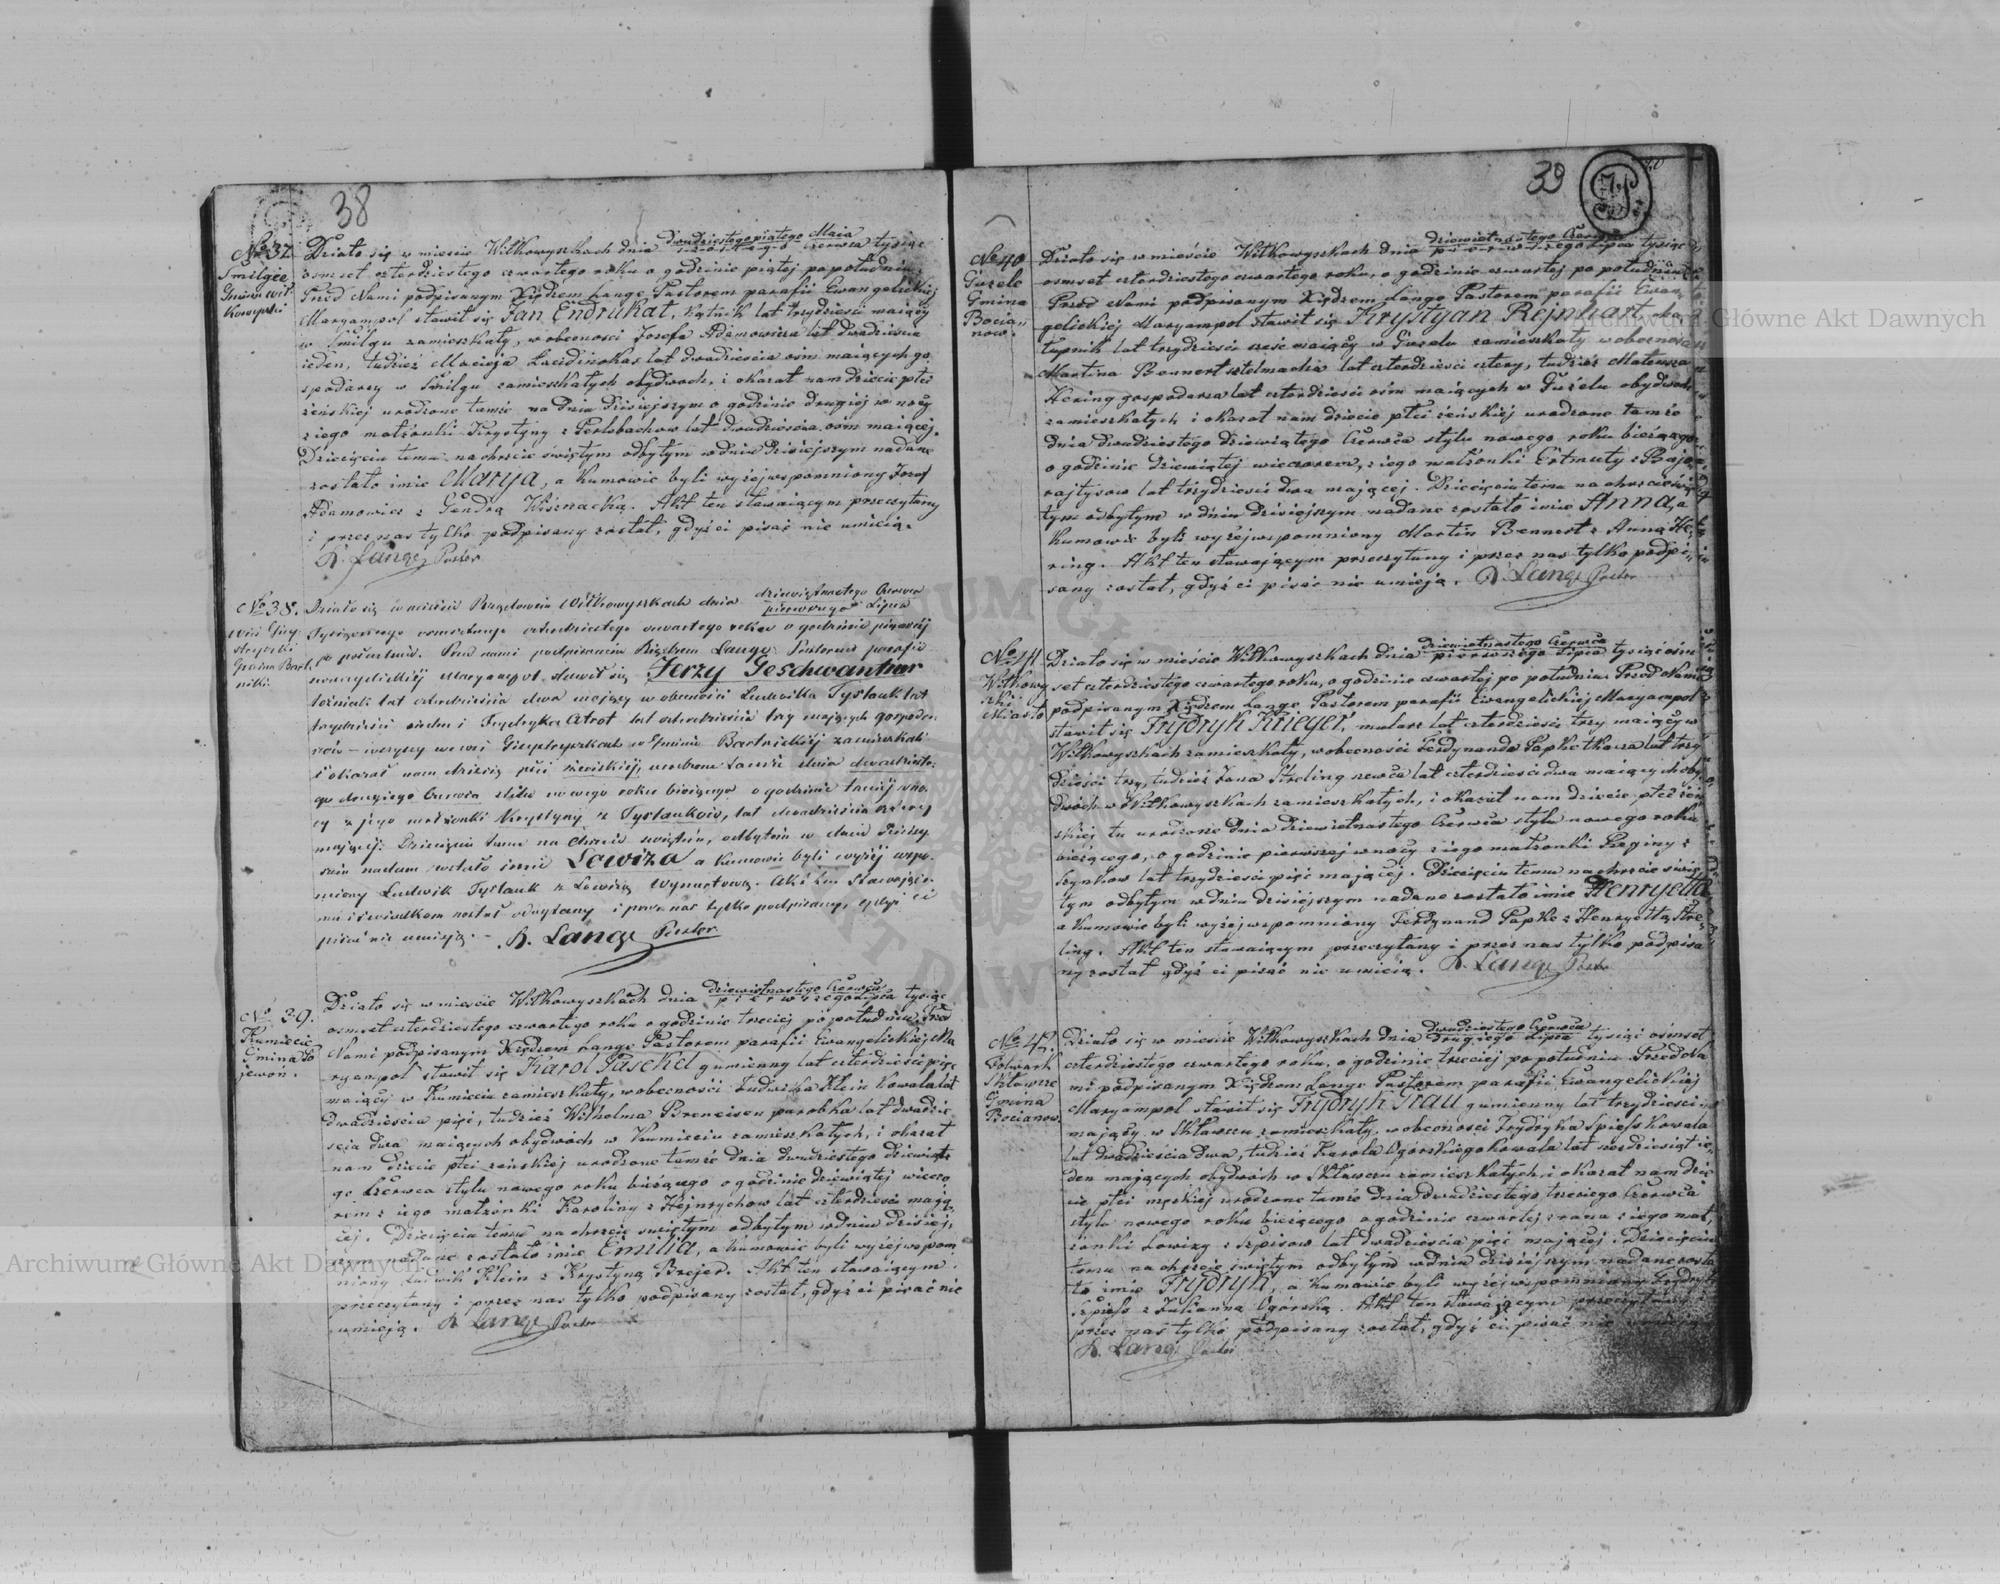 38
No 37.
Smilgie
Gmina Wił-
kowyski
Działo się w mieście Wiłkowyszkach dnia dwudziestego piątego Maia Czerwca tysiąc
osmset czterdziestego czwartego roku o godzinie piątej popołudniu
Przed Nami podpisanym Xiędzem Lange Pastorem parafii Ewangelickiej
Maryampol stawił się Jan Endrukat, lat trzydzieści maiący
w Smilgu zamieszkały, w obecności Jozefa Adamowicza lat dwadzieścia
ieden, tudzież Macieja lat dwadzieścia osm maiących go,
spodarzy w Smilgu zamieszkałych obydwoch, i okazał nam dziecie płci
żeńskiej urodzone tamże na dniu dzisiejszym o godzinie drugiej w nocy
z iego małżonki Krystyny z Perlobachow lat dwadzieścia osm maiącej.
Dziecięciu temu na chrzcie świętym odbytym w dniu dzisiejszym nadane
zostało imie Marya, a kumowie byli wyżejwspomniony Jozef
Adamowicz z Gendrą Wisznacką. Akt ten stawaiącym przeczytany
i przez nas tylko podpisany został, gdyż ci pisać nie umieią.
R. Lange Pastor
No 38.
Wieś Giey-
Gmina Bart,
nicki
Działo się w mieście Wiłkowyszkach dnia dziewiętnastego Czerwca
pierwszego Lipca
Tysiącznego osmsetnego czterdziestego czwartego roku o godzinie pierwszej
po południu. Przed nami podpisanem Xiędzem Lange Pastorem parafii
ewangelickiej Maryampol stawił się Jerzy Geschwantner
lat czterdzieścia dwa mający w obecności Ludwika Tyslauk lat
trzydzieści siedm i Frydryka Atrot lat czterdzieści trzy mających gospoda-
rzów wszyscy we wsi w Gminie Bartnickiej zamieszkali
i okazał nam dziecię płci żeńskiej, urodzone tamże dnia dwudzieste-
go drugiego Czerwca stilu nowego roku bieżącego o godzinie trzeciej w no-
cy z jego małżonki Krystyny z Tyslaukow, lat dwadzieścia cztery
mającej. Dziecięciu temu na Chrzcie świętem, odbytem w dniu dzisiey-
szem nadane zostało imie Lowiza a Kumowie byli wyżej wspo-
miony Ludwik Tyslauk z Lowizą Wynertową. Akt ten Stawającem
mu i świadkom został odczytany i przez nas tylko podpisany, gdyż ci
pisać nie umieją. - R. Lange Pastor
No 39.
Kumiecie
Gmina Do
jewoń.
Działo się w mieście Wiłkowyszkach dnia dziewiętnastego Czerwca
pierwszego Lipca tysiąc
osmset czterdziestego czwartego roku o godzinie trzeciej po południu. Przed
Nami podpisanym Xiędzem Lange Pastorem parafii Ewangelickiej Ma
ryampol stawił się Karol Paschel gumienny lat czterdzieści pięć
maiący w Kumieciu zamieszkały, w obecności Ludwika Klein kowala lat
dwadzieścia pięć, tudzież Wilhelma Brencisen parobka lat dwadzie
ścia dwa maiących obydwoch w Kumieciu zamieszkałych, i okazał
nam dziecie płci żeńskiej urodzone tamże dnia dwudziestego dziewiąte
go Czerwca stylu nowego roku bieżącego o godzinie dziewiątej wieczo
rem z iego małżonki Karoliny z Hejnrychow lat czterdzieści mają
cej. Dziecięciu temu na chrzcie świętym odbytym w dniu dzisiej,
szym nadane zostało imie Emilia, a kumowie byli wyżejwspom
niony Ludwik Klein z Krystyną Brejer. Akt ten stawaiącym
przeczytany i przez nas tylko podpisany został, gdyż ci pisać nie
umieją. R. Lange Pastor
39
No 40
Guzele
Gmina
Bocia,
now.
Działo się w mieście Wiłkowyszkach dnia dziewiętnastego Czerwca
pierwszego Lipca tysiąc
osmset czterdziestego czwartego roku, o godzinie czwartej po południu
Przed Nami podpisanym Xiędzem Lange Pastorem parafii Ewan,
gelickiej Maryampol stawił się Krystyan Rejnhart, cha,
łupnik lat trzydzieści sześć maiący w Guzelu zamieszkały w obecności
Martina Bennert sztelmacha lat czterdzieści cztery, tudzież Mateusza
Hering gospodarza lat czterdzieści osm maiących w Guzelu obydwoch
zamieszkałych i okazał nam dziecie płci żeńskiej urodzone tamże
dnia dwudziestego dziewiątego Czerwca stylu nowego roku bieżącego
o godzinie dziewiątej wieczorem, z iego małżonki Ertmuty z Baje,
rajtysow lat trzydzieści dwa mającej. Dziecięciu temu na chrzcie świę,
tym odbytym w dniu dzisiejszym nadane zostało imie Anna, a
kumowie byli wyżejwspomniony Martin Bennert z Anną He,
ring. Akt ten stawaiącym przeczytany i przez nas tylko podpi,
sany został, gdyż ci pisać nie umieją. R. Lange Pastor
No 41
Wiłkowy
szki
Miasto
Działo się w mieście Wiłkowyszkach dnia dziewiętnastego Czerwca
pierwszego Lipca tysiąc osm
set czterdziestego czwartego roku, o godzinie czwartej po południu. Przed Nami
podpisanym Xiędzem Lange Pastorem parafii Ewangelickiej Maryampol
stawił się Frydryk Krieger, mularz lat czterdzieści trzy maiący w
Wiłkowyszkach zamieszkały, w obecności Ferdynanda Papke tkacza lat trzy
dzieści trzy, tudzież Jana Streling szewca lat czterdzieści dwa maiących oby
dwoch w Wiłkowyszkach zamieszkałych, i okazał nam dziecie płci żeń
skiej tu urodzone dnia dziewiętnastego Czerwca stylu nowego roku
bieżącego, o godzinie pierwszej w nocy z iego małżonki Reginy z
Szynkow lat trzydzieści pięć mającej. Dziecięciu temu na chrzcie świę
tym odbytym w dniu dzisiejszym nadane zostało imie Henryetta
a kumowie byli wyżejwspomniony Ferdynand Papke z Henryettą Stre
ling. Akt ten stawaiącym przeczytany i przez nas tylko podpisa
ny został gdyż ci pisać nie umieią. R. Lange Pastor
No 42.
Folwark
Skławsze
Gmina
Bocianow
Działo się w mieście Wiłkowyszkach dnia dwudziestego Czerwca
drugiego Lipca tysiąc osmset
czterdziestego czwartego roku, o godzinie trzeciej po południu. Przed Na
mi podpisanym Xiędzem Lange Pastorem parafii Ewangelickiej
Maryampol stawił się Frydryk Grau gumienny lat trzydzieści
mający w Skławcu zamieszkały w obecności Frydryka Spiess kowala
lat dwadzieścia dwa, tudzież Karola Ogórskiego kowala lat sześdziesiąt ie,
den mających obydwoch w Skławcu zamieszkałych, i okazał nam dzie
cie płci męzkiej urodzone tamże dnia dwudziestego trzeciego Czerwca
stylu nowego roku bieżącego o godzinie czwartej z rana z iego mał,
żonki Lowizy z Szpisow lat dwadzieścia pięć mającej. Dziecięciu
temu na chrzcie świętym odbytym w dniu dzisiejszym nadane zosta
ło imie Frydryk, a kumowie byli wyżejwspomniony Frydryk
Szpiess z Julianną Ogórską. Akt ten stawającym przeczytany i
przez nas tylko podpisany został, gdyż ci pisać nie umieją
R. Lange Pastor
Archiwum Główne Akt Dawnych
Archiwum Główne Akt Dawnych